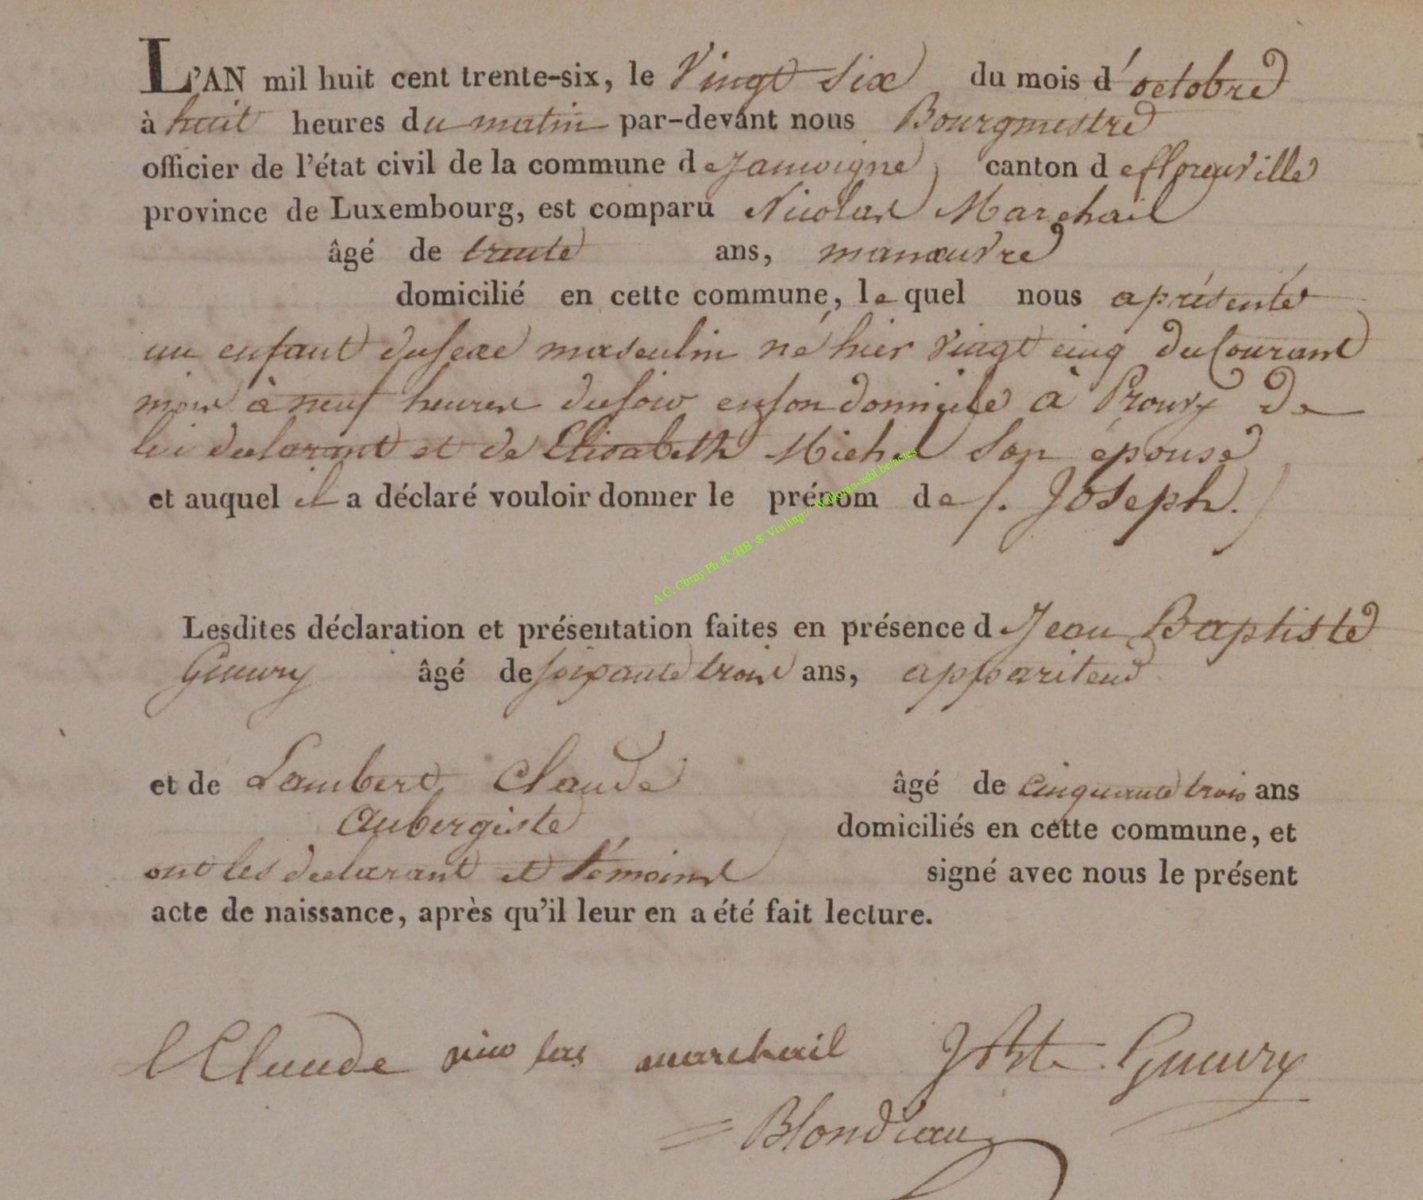 L'AN mil huit cent trente-six, le Vingt six du mois d'octobre
à huit heures du matin par-devant nous Bourgmestre
officier de l'état civil de la commune de Jamoigne, canton de florenville
province de Luxembourg, est comparu Nicolas Marchail
âgé de trente ans, manœuvre
domicilié en cette commune, le quel nous a présenté
un enfant du sexe masculin né hier vingt cinq du Courant
mois à neuf heures du soir en son domicile à Prouvy de
lui declarant et de Elisabeth Michel son épouse
et auquel il a déclaré vouloir donner le prénom de J. Joseph.
A.C. Chiny Ph JC/HB & Via
Lesdites déclaration et présentation faites en présence de Jean Baptiste
Gueury âgé de soixante trois ans, appariteur
et de Lambert Claude âgé de cinquante trois ans
aubergiste domiciliés en cette commune, et
ont les declarant et témoins signé avec nous le présent
acte de naissance, après qu'il leur en a été fait lecture.
l Claude nico las marchail J Bte Gueury
Blondiau